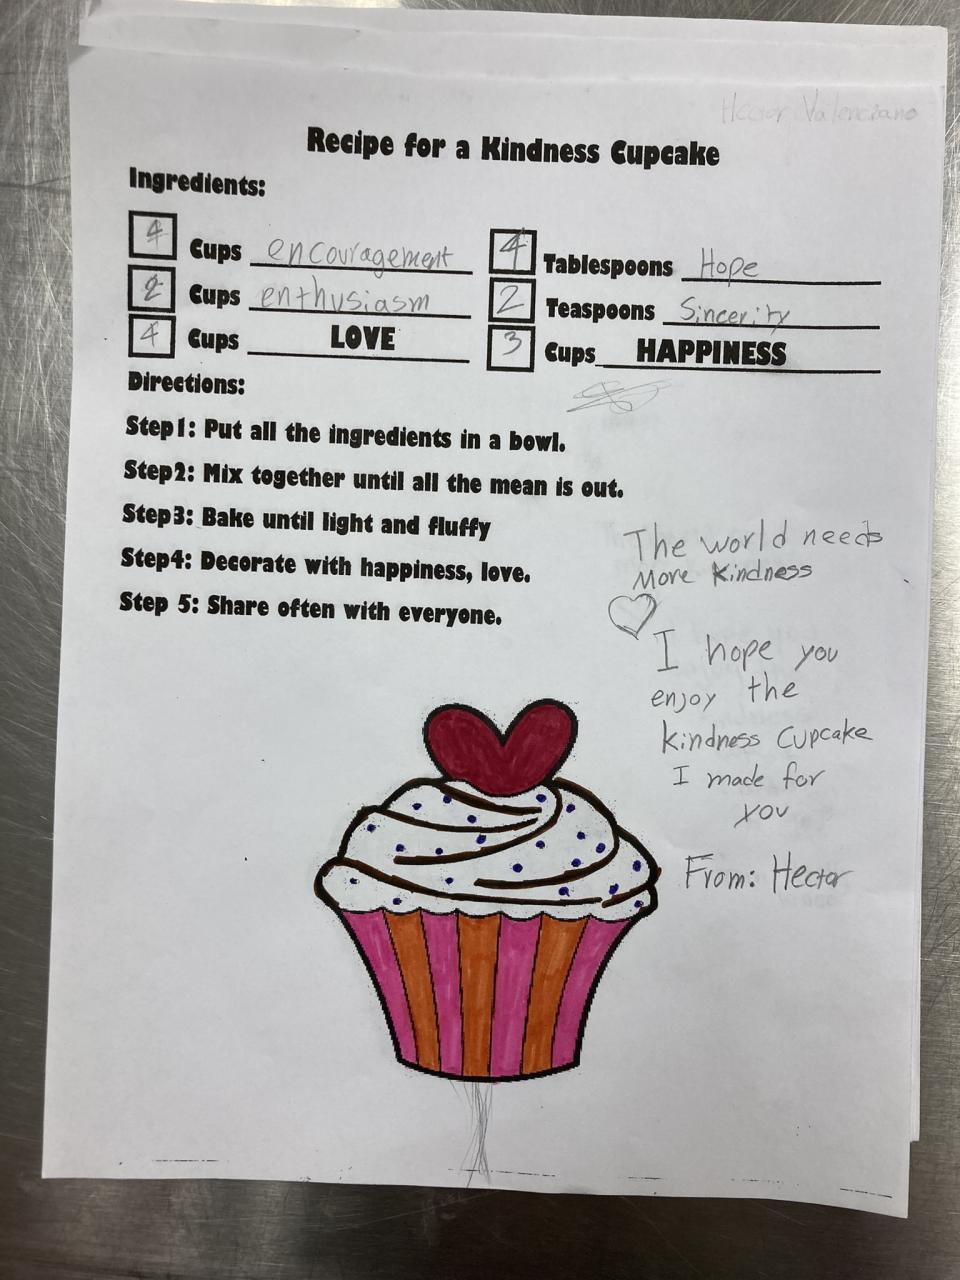 Hector Valenciano
Recipe for a Kindness Cupcake
Ingredients:
4 Cups encouragement
4 Tablespoons Hope
2 Cups enthusiasm
2 Teaspoons Sincerity
4 Cups LOVE
3 Cups HAPPINESS
Directions:
Step1: Put all the ingredients in a bowl.
Step2: Mix together until all the mean is out.
Step3: Bake until light and fluffy
Step4: Decorate with happiness, love.
Step 5: Share often with everyone.
The world needs
More kindness
I hope you
enjoy the
kindness cupcake
I made for
you
From: Hector